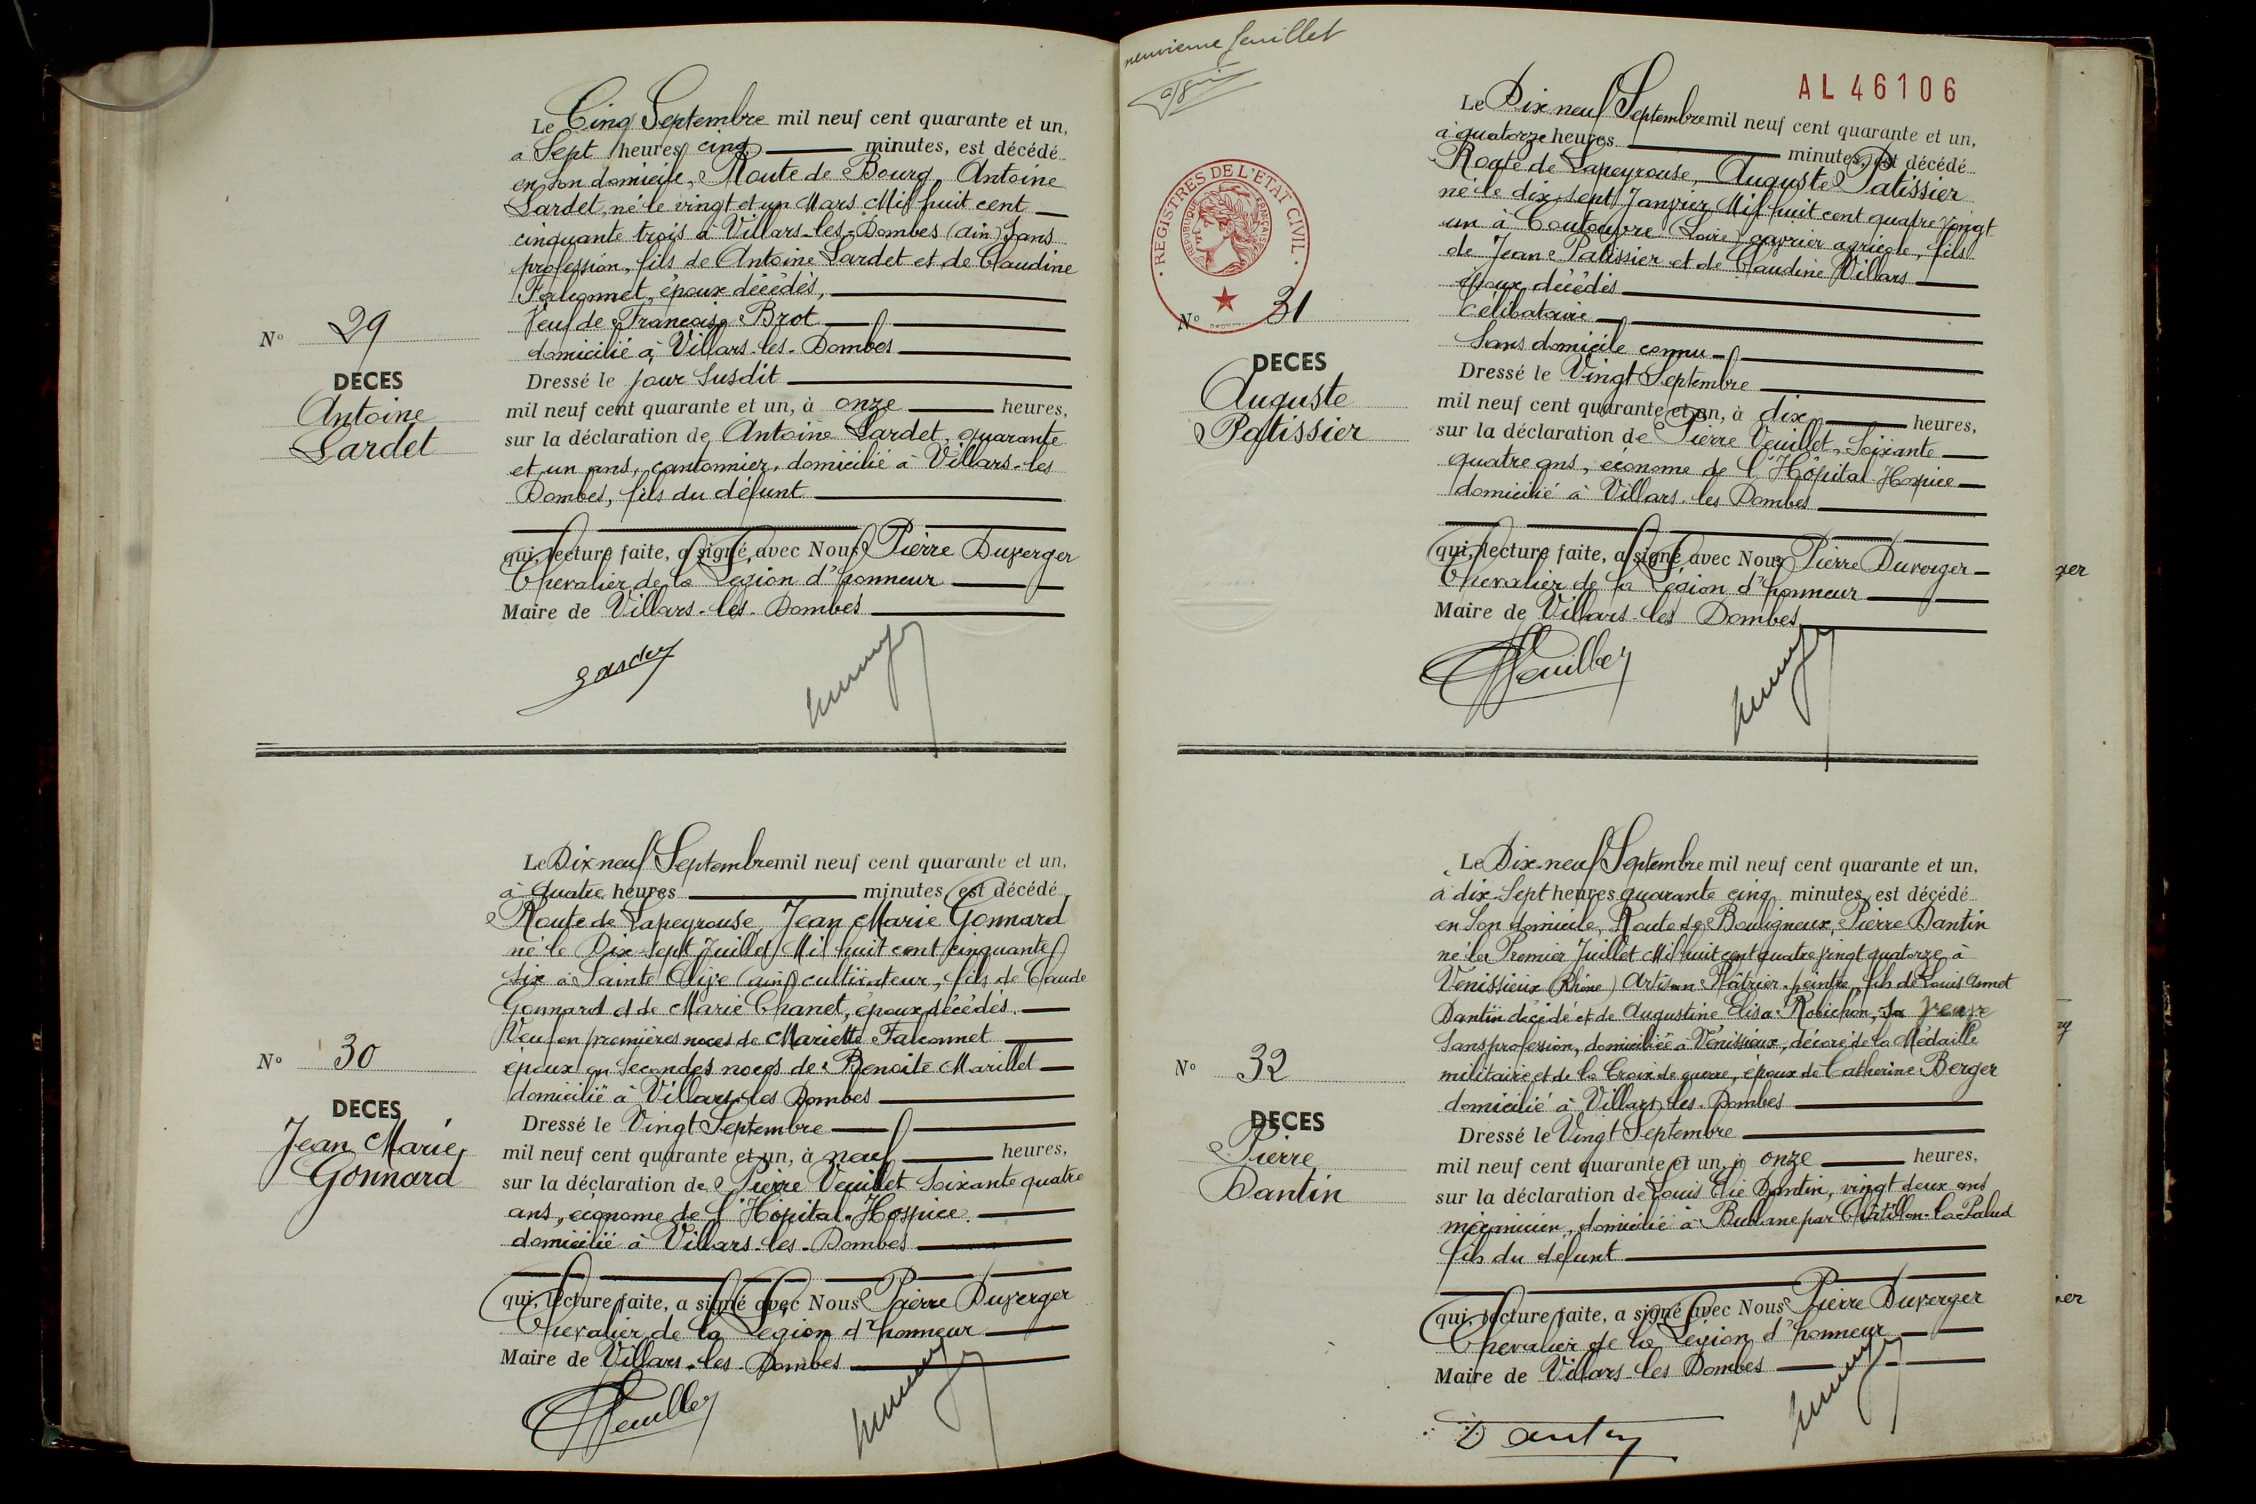 Le Cinq Septembre mil neuf cent quarante et un,
à Sept heures cinq minutes, est décédé
en son domicile, Route de Bourg, Antoine
Lardet, né le vingt et un Mars Mil huit cent
cinquante trois à Villars-les-Dombes (Ain) Sans
profession, fils de Antoine Lardet et de Claudine
époux décédés,
Veuf de Françoise Brot
domicilié à Villars-les-Dombes
Dressé le jour susdit
mil neuf cent quarante et un, à onze heures,
sur la déclaration de Antoine Lardet, quarante
et un ans, cantonnier, domicilié à Villars-les
Dombes, fils du défunt
qui, lecture faite, a signé avec Nous Pierre Duverger
Chevalier de la Légion d'honneur
Maire de Villars-les-Dombes
No 29
DECES
Antoine
Lardet
Le Dix neuf Septembre mil neuf cent quarante et un,
à quatre heures minutes, est décédé
Route de Lapeyrouse, Jean Marie Gonnard
né le Dix-sept Juillet Mil huit cent cinquante
six à Sainte Olive (ain) cultivateur, fils de Claude
Gonnard et de Marie Chanet, époux décédés.
Veuf en premières noces de Mariette Falconnet
époux en secondes noces de Benoite Marillet
domicilié à Villars-les-Dombes
Dressé le Vingt Septembre
mil neuf cent quarante et un, à neuf heures,
sur la déclaration de Pierre Veuillet Soixante quatre
ans, économe de l'Hôpital-Hospice.
domicilié à Villars-les-Dombes
qui, lecture faite, a signé avec Nous Pierre Duverger
Chevalier de la Légion d'honneur
Maire de Villars-les-Dombes
No 30
DECES
Jean Marie
Gonnard
neuvième feuillet
AL 46106
REGISTRES DE L'ETAT CIVIL
REPUBLIQUE FRANÇAISE
Le Dix neuf Septembre mil neuf cent quarante et un,
à quatorze heures minutes, est décédé
Route de Lapeyrouse, Auguste Patissier
né le dix-sept Janvier Mil huit cent quatre vingt
un à Coutouvre (Loire) ouvrier agricole, fils
de Jean Patissier et de Claudine Villars
époux décédés
célibataire
Sans domicile connu
Dressé le Vingt Septembre
mil neuf cent quarante et un, à dix heures,
sur la déclaration de Pierre Veuillet, Soixante
quatre ans, économe de l'Hôpital-Hospice
domicilié à Villars-les Dombes
qui, lecture faite, a signé avec Nous Pierre Duverger
Chevalier de la Légion d'honneur
Maire de Villars-les Dombes
Veuillet
No 31
DECES
Auguste
Patissier
Le Dix-neuf Septembre mil neuf cent quarante et un,
à dix-Sept heures quarante cinq minutes, est décédé
en Son domicile, Route de Bouligneux, Pierre Dantin
né le Premier Juillet Mil huit cent quatre vingt quatorze à
Vénissieux (Rhône) Artisan Plâtrier-peintre, fils de Louis Annet
Dantin décédé et de Augustine Elisa Robichon, Sa veuve
Sans profession, domiciliée à Vénissieux, décoré de la Médaille
militaire et de la Croix de guerre, époux de Catherine Berger
domicilié à Villars-les-Dombes
Dressé le Vingt Septembre
mil neuf cent quarante et un, à onze heures,
sur la déclaration de Louis Elie Dantin, vingt deux ans
mécanicien, domicilié à Bublane par Châtillon-la-Palud
fils du défunt
qui, lecture faite, a signé avec Nous Pierre Duverger
Chevalier de la Légion d'honneur
Maire de Villars-les Dombes
Dantin
No 32
DECES
Pierre
Dantin